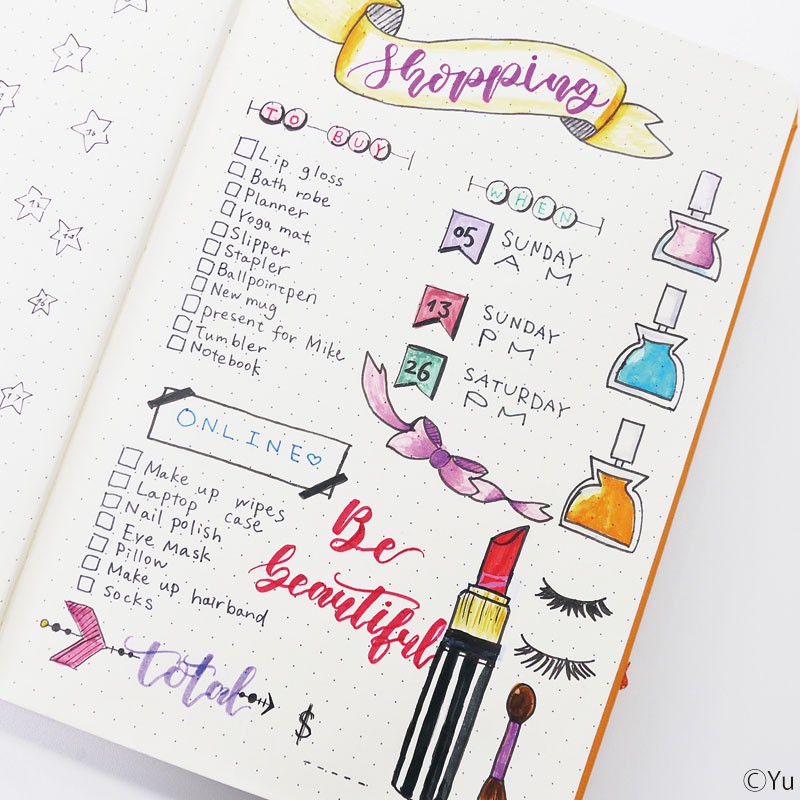 Shopping
TO BUY
Lip gloss
Bath robe
Planner
Yoga mat
Slipper
Stapler
Ballpointpen
New mug
present for Mike
Tumbler
Notebook
WHEN
05 SUNDAY
AM
13 SUNDAY
PM
26 SATURDAY
PM
O.N.L.I.N.E♡
Make up wipes
Laptop case
Nail polish
Eye Mask
Pillow
Make up hairband
Socks
Be
beautiful
total
$
©Yu